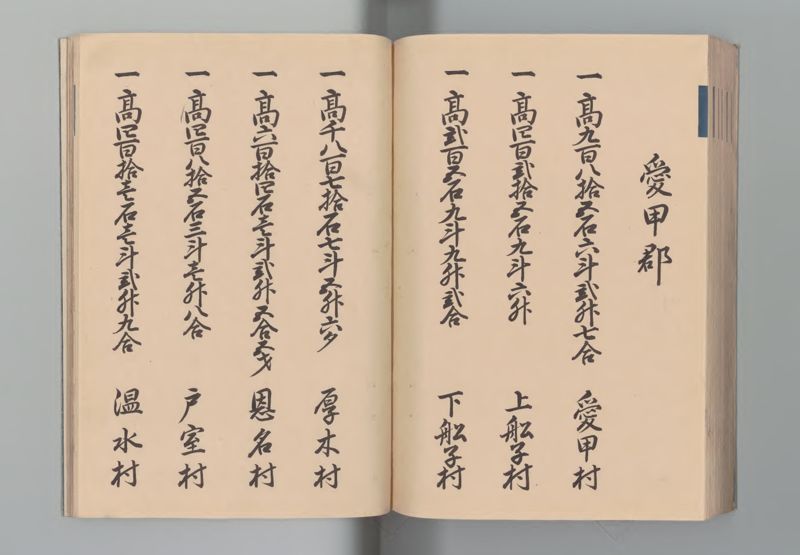 愛甲郡
一高九百八拾五石六斗弐升七合 愛甲村
一高四百弐拾五石九斗六升 上船子村
一高弐百五石九斗九升弐合 下船子村
一高千八百七拾石七斗五升六夕 厚木村
一高六百拾四石壱斗弐升五合五夕 恩名村
一高四百八拾五石三斗壱升八合 戸室村
一高四百拾壱石壱斗弐升九合 温水村